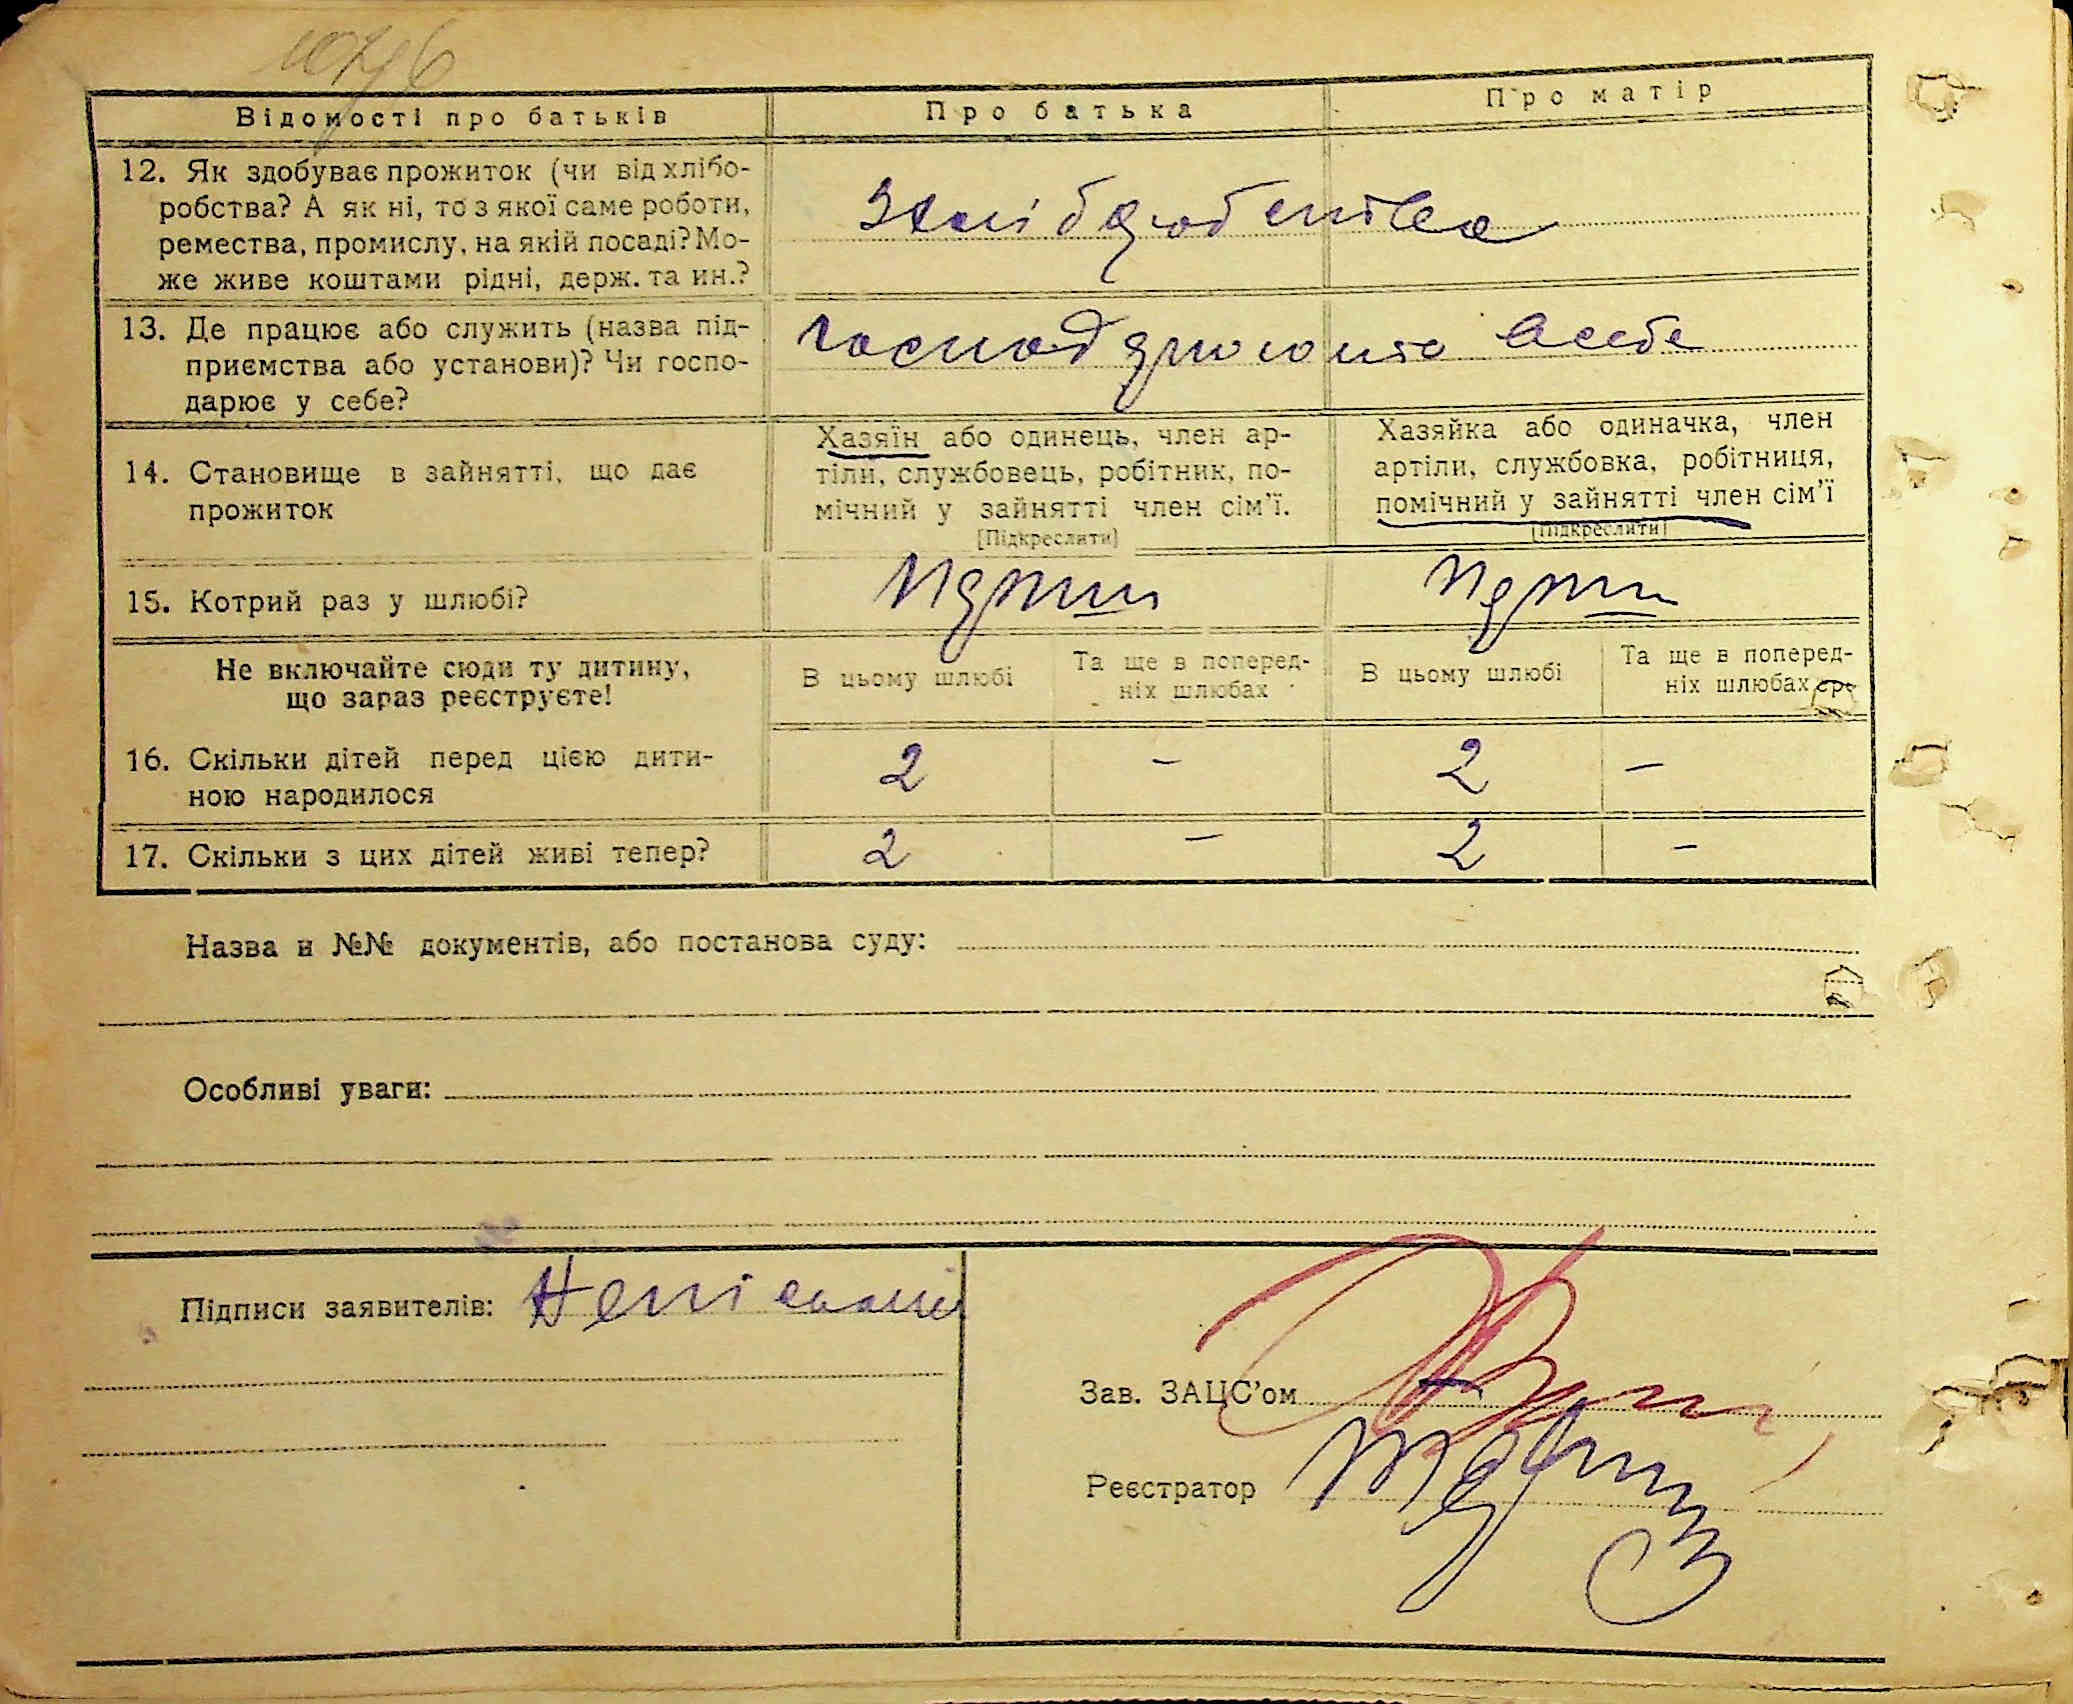 Відомості про батьків Про батька Про матір
12. Як здобуває прожиток (чи від хлібо-
робства? А як ні, то з якої саме роботи,
ремества, промислу, на якій посаді? Мо-
же живе коштами рідні, держ. та ин.?
З хліборобства
13. Де працює або служить (назва під-
приємства або установи)? Чи госпо-
дарює у себе?
господарюють в себе
14. Становище в зайнятті, що дає
прожиток
Хазяїн або одинець, член ар-
тіли, службовець, робітник, по-
мічний у зайнятті член сім'ї.
[Підкреслити]
Хазяйка або одиначка, член
артіли, службовка, робітниця,
помічний у зайнятті член сім'ї
[Підкреслити]
15. Котрий раз у шлюбі?
Не включайте сюди ту дитину,
що зараз реєструєте!
В цьому шлюбі
Та ще в поперед-
ніх шлюбах
В цьому шлюбі
Та ще в поперед-
ніх шлюбах
16. Скільки дітей перед цією дити-
ною народилося
2 – 2 –
17. Скільки з цих дітей живі тепер? 2 – 2 –
Назва и №№ документів, або постанова суду:
Особливі уваги:
Підписи заявителів:
Зав. ЗАЦС'ом
Реєстратор